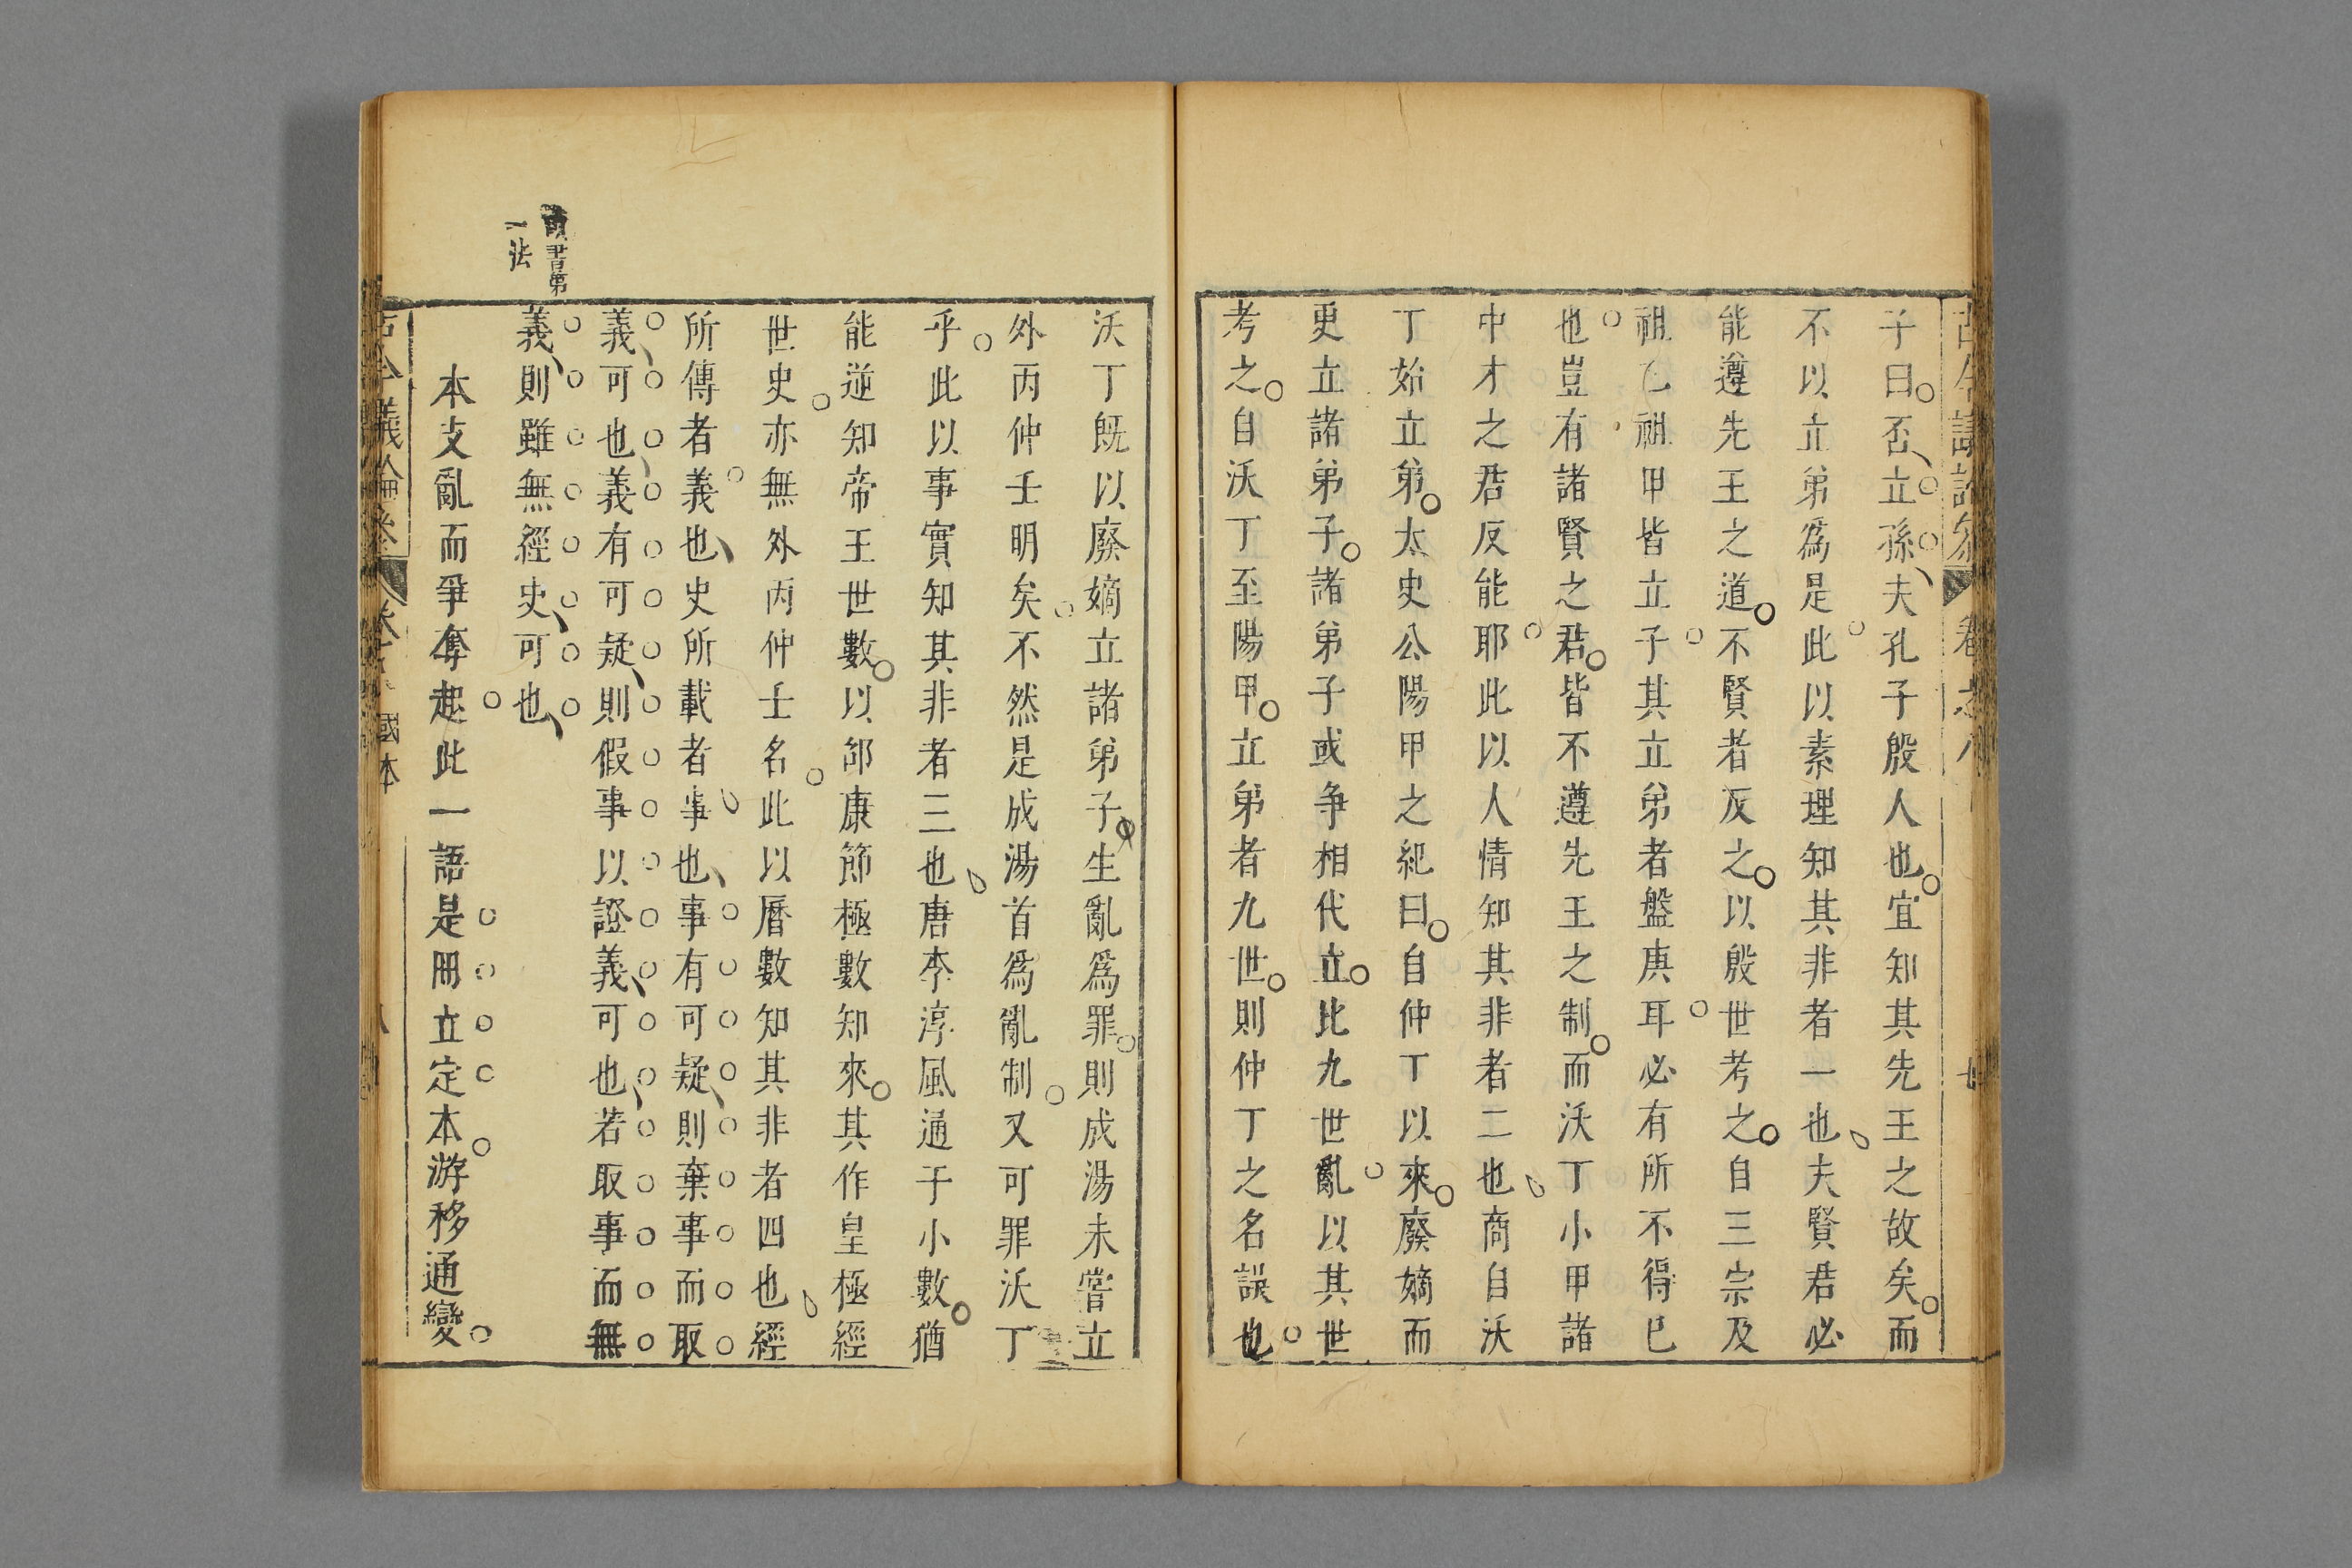 子曰否立孫夫孔子殷人也宜知其先王之故矣而
不以立弟爲是此以素理知其非者一也夫賢君必
能遵先王之道不賢者反之以殷世考之自三宗及
祖乙祖甲皆立子其立弟者盤庚耳必有所不得已
也豈有諸賢之君皆不遵先王之制而沃丁小甲諸
中才之君反能耶此以人情知其非者二也商自沃
丁始立弟太史公陽甲之紀曰自仲丁以來廢嫡而
更立諸弟子諸弟子或爭相代立比九世亂以其世
考之自沃丁至陽甲立弟者九世則仲丁之名誤也
沃丁旣以廢嫡立諸弟子生亂爲罪則成湯未嘗立
外丙仲壬明矣不然是成湯首爲亂制又可罪沃丁
乎此以事實知其非者三也唐李淳風通于小數猶
能逆知帝王世數以邵康節極數知來其作皇極經
世史亦無外丙仲壬名此以曆數知其非者四也經
所傳者義也史所載者事也事有可疑則棄事而取
義可也義有可疑則假事以證義可也若取事而無
義則雖無經史可也
讀書第
一法
本支亂而爭奪起此一語是冊立定本游移通變
國本